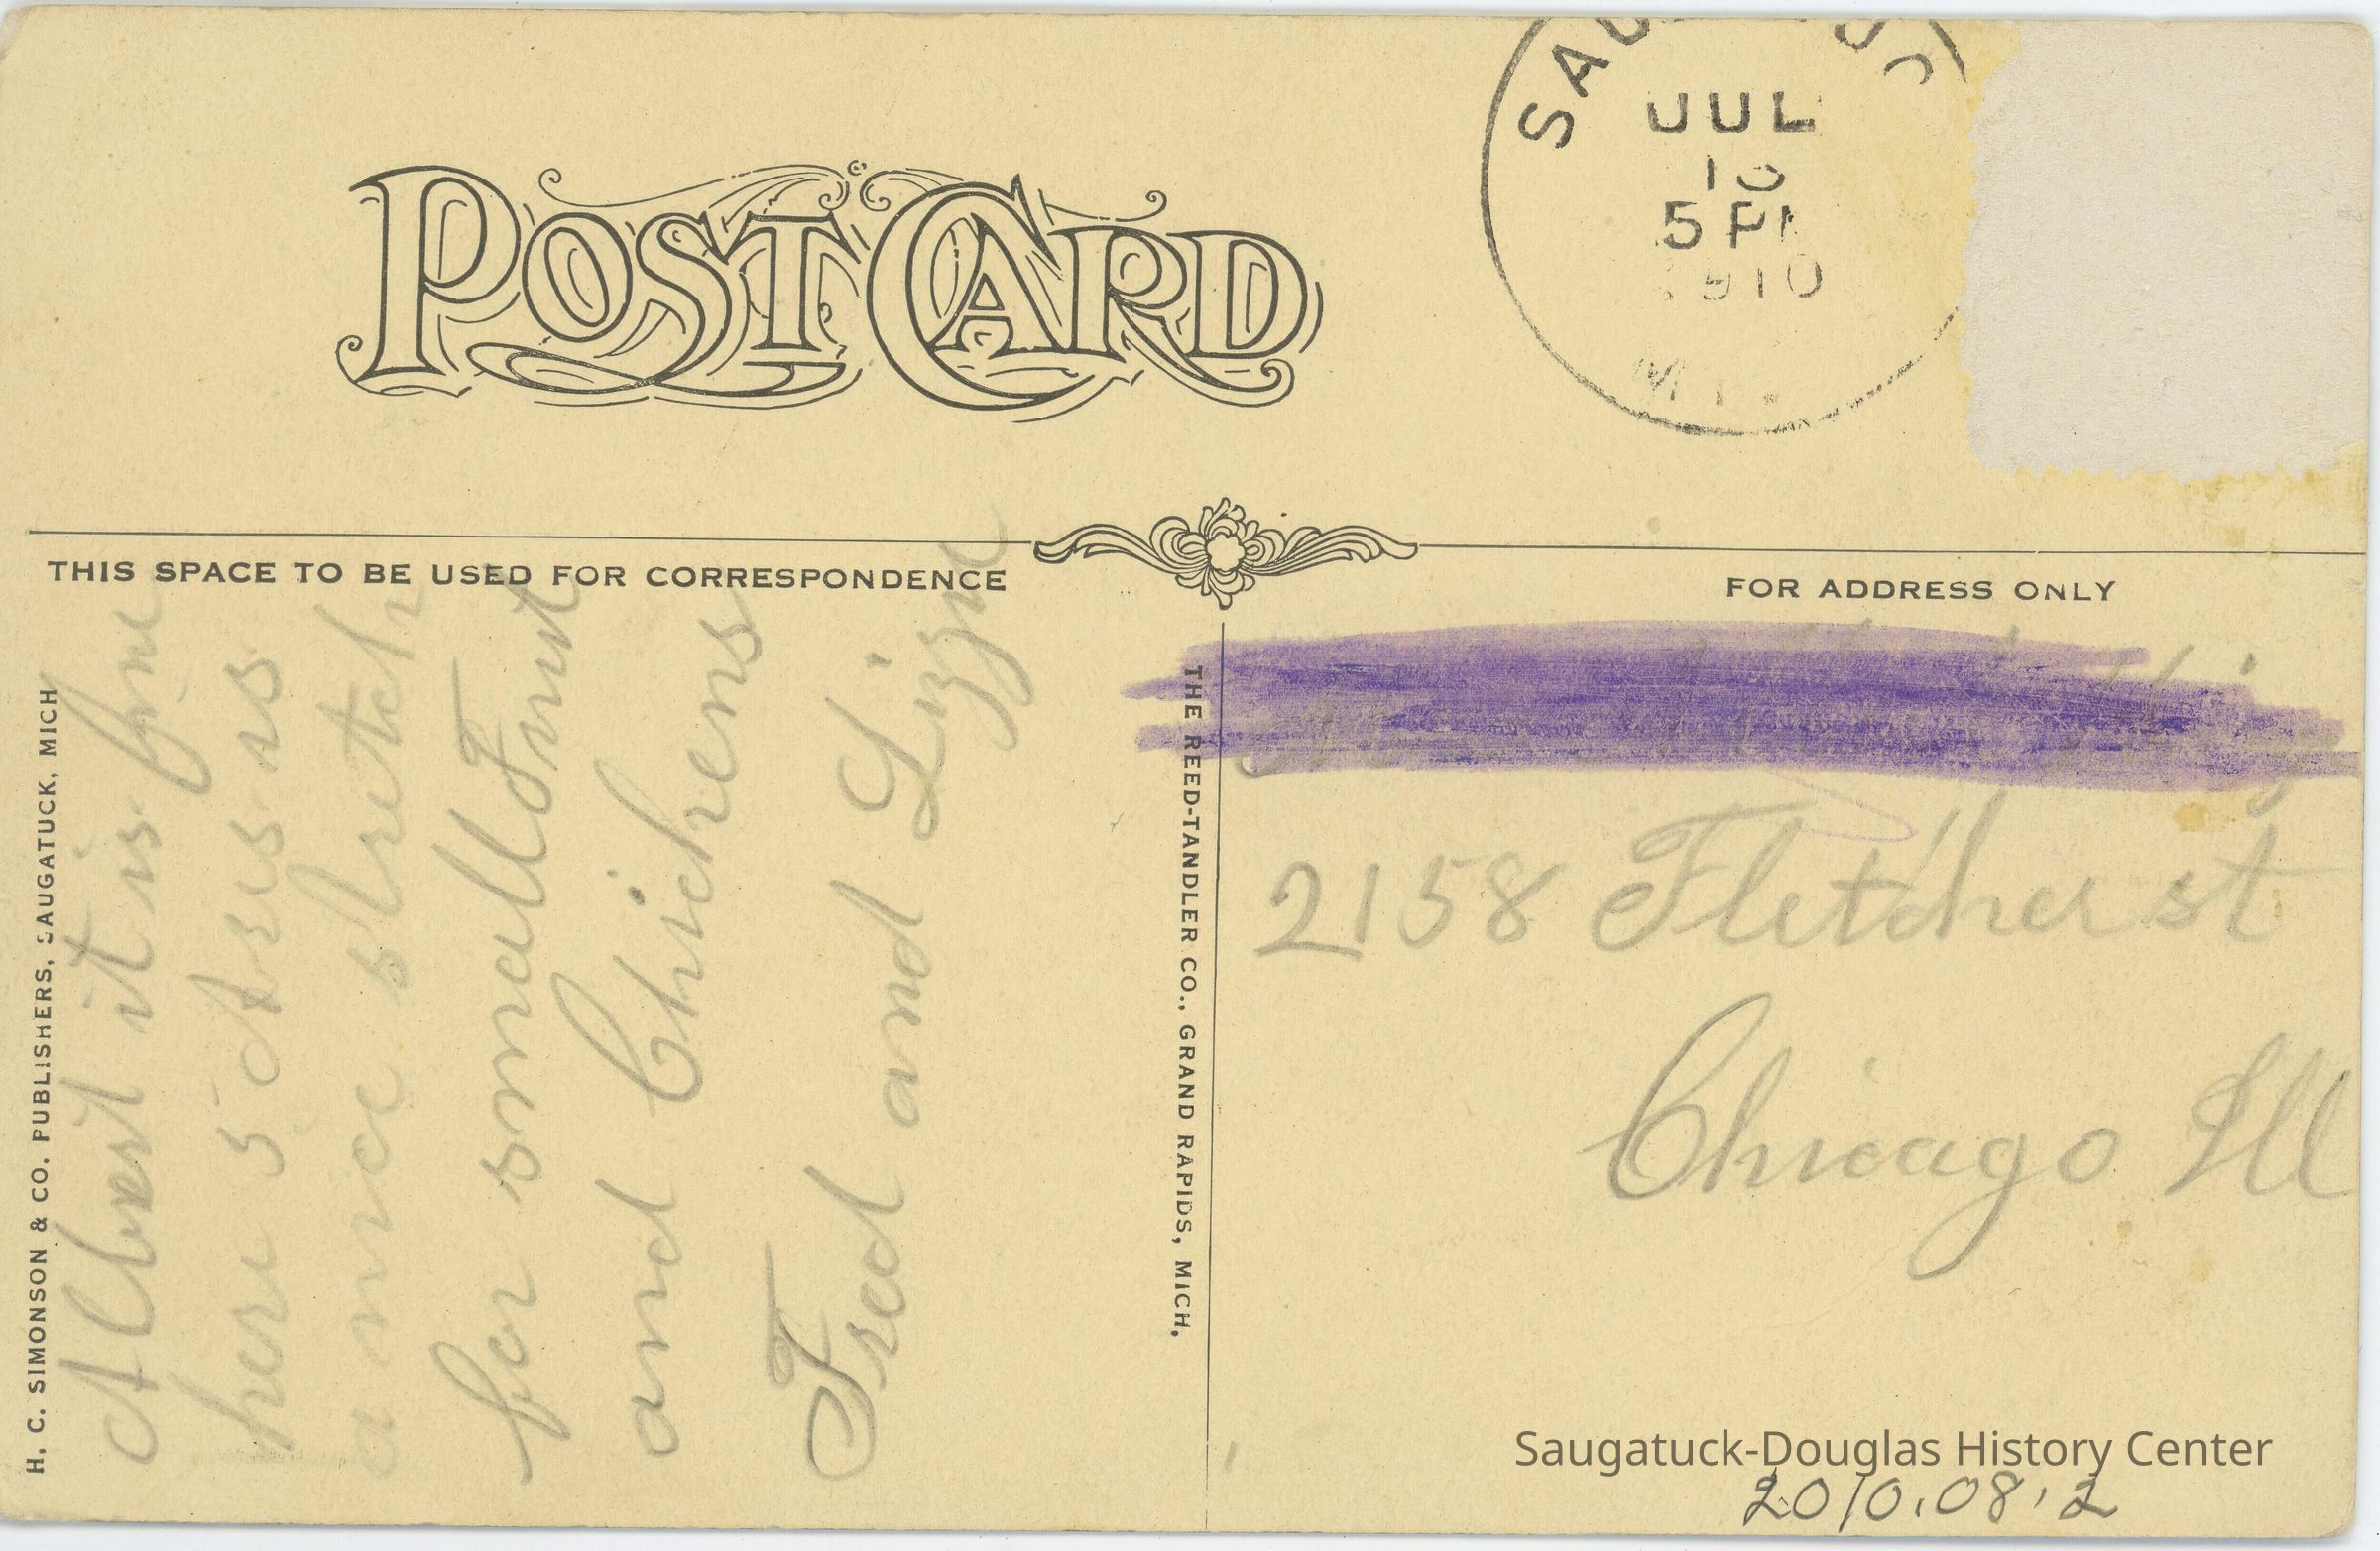 POST CARD
JUL
5 P
1910
THIS SPACE TO BE USED FOR CORRESPONDENCE
FOR ADDRESS ONLY
H. C. SIMONSON & CO. PUBLISHERS, SAUGATUCK, MICH
Albert it is fine
here 5 Acres is
a nice stretch
for small Fruit
and Chickens
Fred and Lizzie
THE REED-TANDLER CO., GRAND RAPIDS, MICH.
2158 Fletcher st
Chicago Ill
Saugatuck-Douglas History Center
2010.08.2